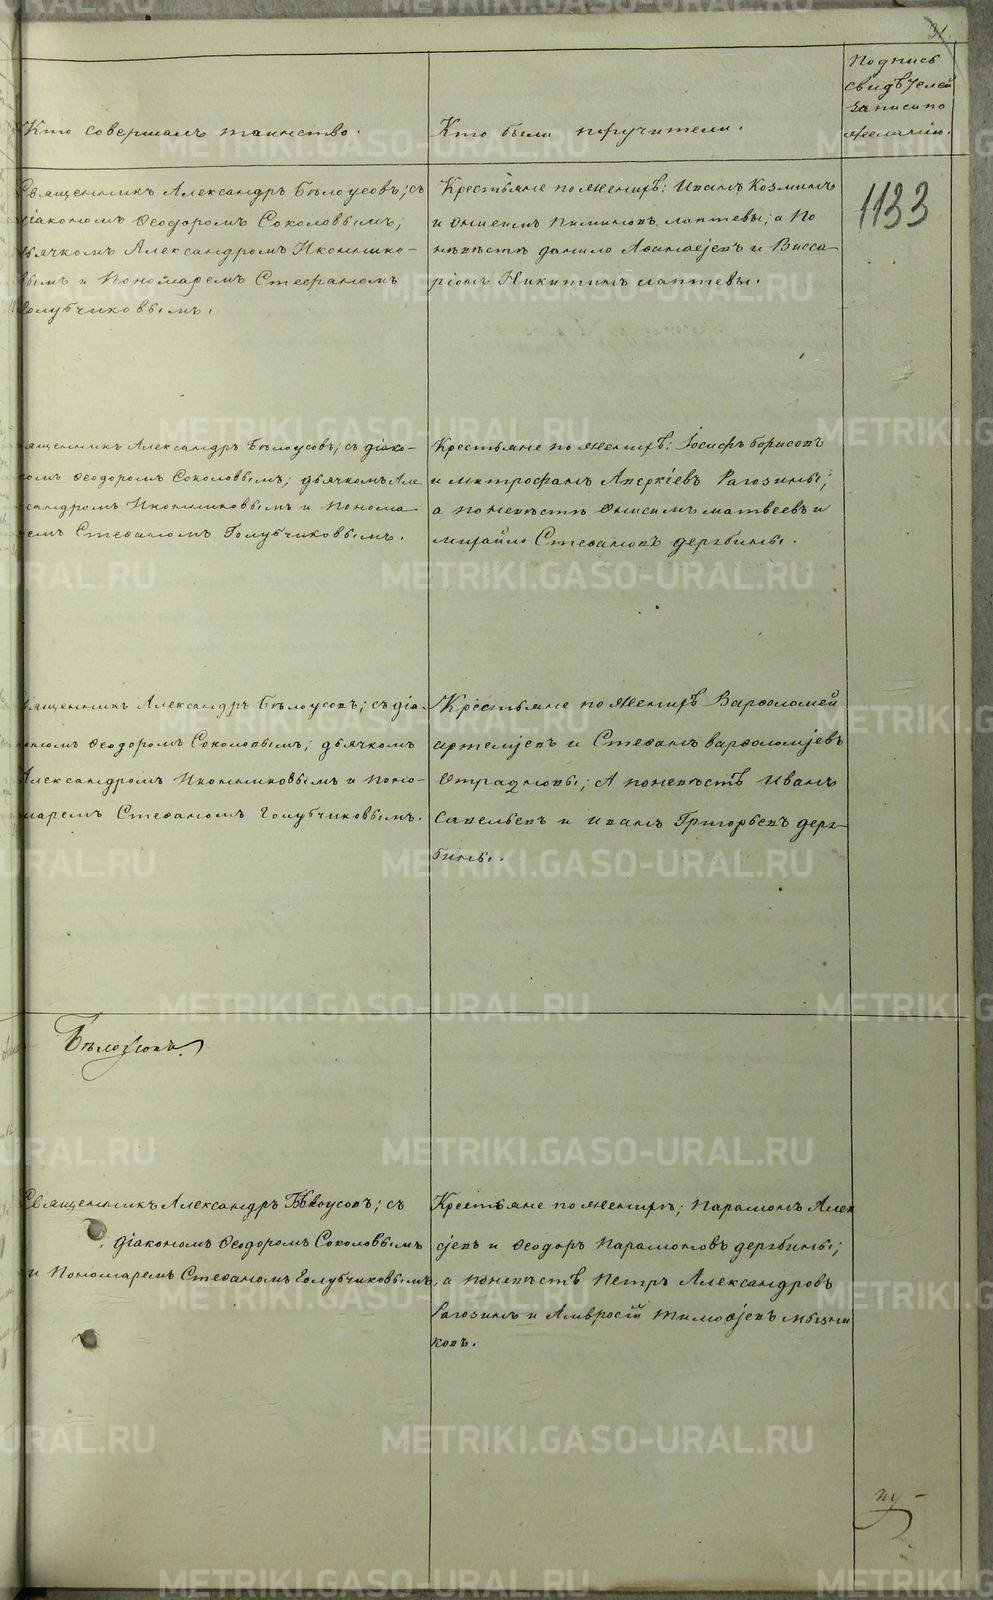 31.
Кто совершалъ таинство.
Кто были поручители.
Подпись
свидѣтелей
записи по
желанію.
1133
Священникъ Александръ Бѣлоусовъ; съ
діакономъ Ѳеодоромъ Соколовымъ;
дьячкомъ Александромъ Иконнико-
вымъ и Пономаремъ Стефаномъ
Голубчиковымъ.
Крестьяне по женихѣ: Иванъ Козминъ
и Пиминовъ Лаптевы; а По
невѣстѣ Данило Аѳанасьевъ и Висса-
ріонъ Никитинъ Лаптевы.
Священникъ Александръ Бѣлоусовъ; съ діако-
номъ Ѳеодоромъ Соколовымъ; дьячкомъ Але
ксандромъ Иконниковымъ и Понома
ремъ Стеѳаномъ Голубчиковымъ.
Крестьяне по женихѣ: Іосифъ Борисовъ
и Митрофанъ Аверкіевъ Рагозины;
а по невѣстѣ Онисимъ Матвеевъ и
Михайло Стеѳановъ Дерябины.
Священникъ Александръ Бѣлоусовъ; съ діа-
кономъ Ѳеодоромъ Соколовымъ; дьячкомъ
Александромъ Иконниковымъ и Поно-
маремъ Стеѳаномъ Голубчиковымъ.
Крестьяне по женихѣ Варѳоломей
Артемьевъ и Стеѳанъ Варѳоломѣевъ
Отрадновы; А по невѣстѣ Иванъ
Савельевъ и Иванъ Григорьевъ Деря-
бины.
Бѣлоусовъ.
Священникъ Александръ Бѣлоусовъ; съ
діакономъ Ѳеодоромъ Соколовымъ
и Пономаремъ Стеѳаномъ Голубчиковымъ
Крестьяне по женихѣ; Парамонъ Алек
сѣевъ и Ѳеодоръ Парамоновъ Дерябины;
а по невѣстѣ Петръ Александровъ
Рагозинъ и Амвросій Тимоѳѣевъ
ковъ.
METRIKI.GASO-URAL.RU